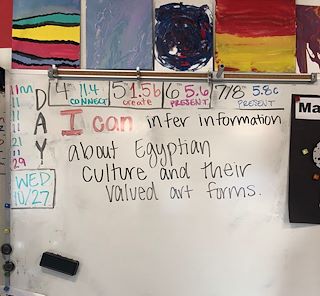 4 11.4 CONNECT 5 1.5b create 6 5.6 PRESENT 7/8 5.8c PRESENT
DAY
I can infer information
about Egyptian
culture and their
valued art forms.
11
11
11
21
11
29
WED
10/27
Ma